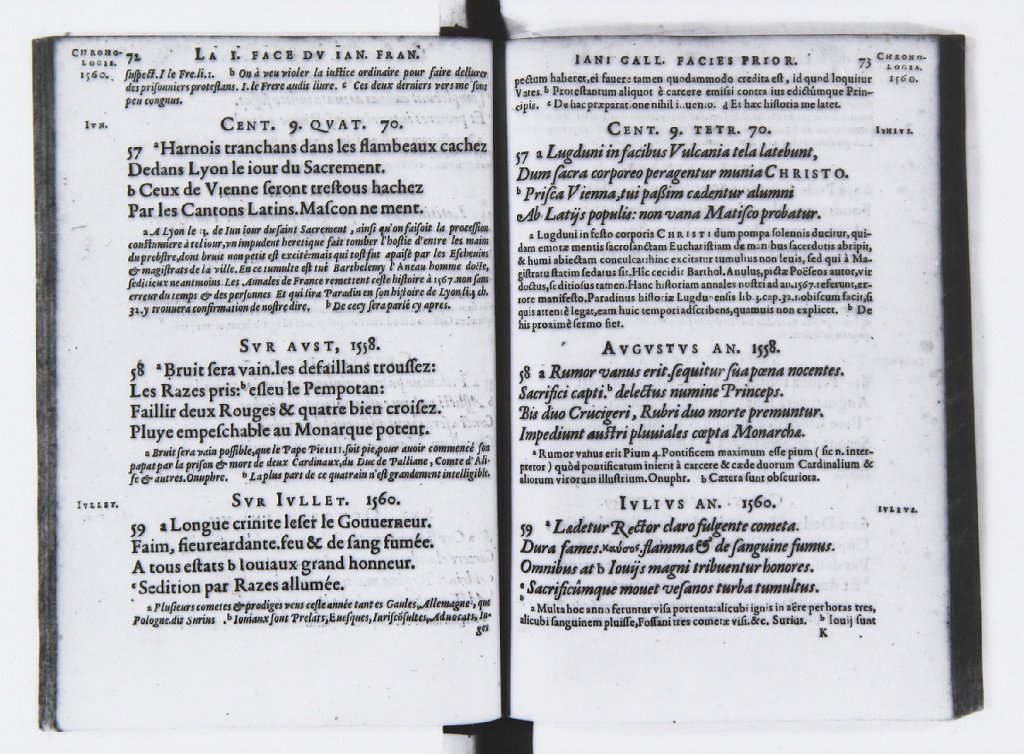 CHRONO-
LOGIE.
1560.
72 LA I. FACE DV IAN. FRAN.
suspect. I le Fre.li.1. b On à veu violer la iustice ordinaire pour faire deliurer
des prisonniers protestans. I. le Frere audit liure. c Ces deux derniers vers me sont
peu congnus.
IVN.
CENT. 9. QVAT. 70.
57 a Harnois tranchans dans les flambeaux cachez
Dedans Lyon le iour du Sacrement.
b Ceux de Vienne seront trestous hachez
Par les Cantons Latins. Mascon ne ment.
a A Lyon le de Iun iour du saint Sacrement, ainsi qu'on faisoit la procession
coustumiere à tel iour, vn impudent heretique fait tomber l'hostie d'entre les mains
du prebstre, dont bruit non petit est excité: mais qui tost fut apaisé par les Escheuins
& magistrats de la ville. En ce tumulte est tué Barthelemy l'Aneau homme docte,
seditieux neantmoins. Les Annales de France remettent ceste histoire à 1567. non sans
erreur du temps & des personnes Et qui lira Paradin en son histoire de Lyon li.3 ch.
32. y trouuera confirmation de nostre dire. b De cecy sera parlé cy apres.
SVR AVST, 1558.
58 a Bruit sera vain. les defaillans troussez:
Les Razes pris: b esleu le Pempotan:
Faillir deux Rouges & quatre bien croisez.
Pluye empeschable au Monarque potent.
a Bruit sera vain possible, que le Pape Pie IIII. soit pie, pour auoir commencé son
papat par la prison & mort de deux Cardinaux, du Duc de Palliane, Comte d'Ali-
fe & autres. Onuphre. b La plus part de ce quatrain n'est grandement intelligible.
IVLLET.
SVR IVLLET. 1560.
59 a Longue crinite leser le Gouuerneur.
Faim, fieure ardante. feu & de sang fumée.
A tous estats b Iouiaux grand honneur.
c Sedition par Razes allumée.
a Plusieurs cometes & prodiges veus ceste année tant es Gaules, Allemagne, que
Pologne. dit Surius. b Iouiaux sont Prelats, Euesques, Iuriscõsultes, Aduocats, Iu-
ges
IANI GALL. FACIES PRIOR. 73
CHRONO-
LOGIA.
1560.
pectum haberet, ei fauere tamen quodammodo credita est, id quod loquitur
Vates. b Protestantum aliquot è carcere emissi contra ius edictúmque Prin-
cipis. c De hac præparatione nihil inuenio. d Et hæc historia me latet.
CENT. 9. TETR. 70.
IVNIVS.
57 a Lugduni in facibus Vulcania tela latebunt,
Dum sacra corporeo peragentur munia CHRISTO.
b Prisca Vienna, tui passim cædentur alumni
Ab Latijs populis: non vana Matisco probatur.
a Lugduni in festo corporis CHRISTI dum pompa solennis ducitur, qui-
dam emotæ mentis sacrosanctam Eucharistiam de manibus sacerdotis abripit,
& humi abiectam conculcat: hinc excitatur tumultus non leuis, sed qui à Ma-
gistratu statim sedatus sit. Hic cecidit Barthol. Anulus, pictæ Poëseos autor, vir
doctus, seditiosus tamen. Hanc historiam annales nostri ad an. 1567. referunt, er-
rore manifesto. Paradinus historiæ Lugdunensis lib. 3. cap. 32. nobiscum facit, si
quis attentè legat, eam huic tempori adscribens, quamuis non explicet. b De
his proximè sermo fiet.
AVGVSTVS AN. 1558.
58 a Rumor vanus erit. sequitur sua pœna nocentes.
Sacrifici capti. b delectus numine Princeps.
Bis duo Crucigeri, Rubri duo morte premuntur.
Impediunt austri pluuiales cœpta Monarchæ.
a Rumor vanus erit Pium 4. Pontificem maximum esse pium (sic n. inter-
pretor) quòd pontificatum inierit à carcere & cæde duorum Cardinalium &
aliorum virorum illustrium. Onuphr. b Cætera sunt obscuriora.
IVLIVS AN. 1560.
IVLIVS.
59 a Lædetur Rector claro fulgente cometa.
Dura fames. καύσος. flamma & de sanguine fumus.
Omnibus at b Iouijs magni tribuentur honores.
c Sacrificûmque mouet vesanos turba tumultus.
a Multa hoc anno feruntur visa portenta: alicubi ignis in aëre per horas tres,
alicubi sanguinem pluisse, Fossani tres cometæ visi. &c. Surius. b Iouij sunt
K